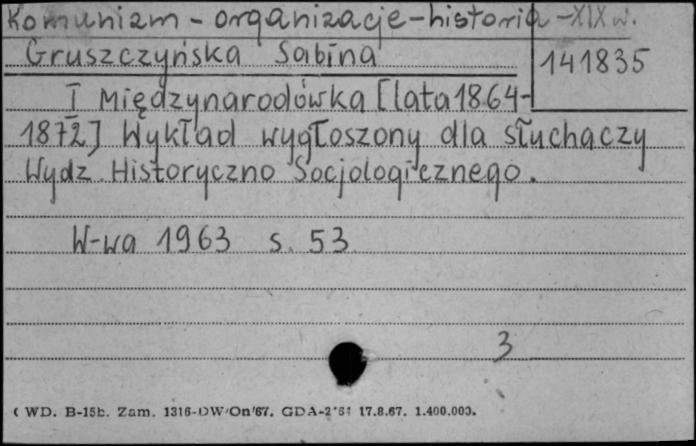 Komunizm - organizacje - historia - XIX w.
Gruszczyńska Sabina
141835
I Międzynarodówka [lata 1864-
1872] Wykład wygłoszony dla słuchaczy
Wydz. Historyczno Socjologicznego.
W-wa 1963 s. 53
3
( WD. B-15b. Zam. 1316-DW/On/67. GDA-2 17.8.67. 1.400.000.